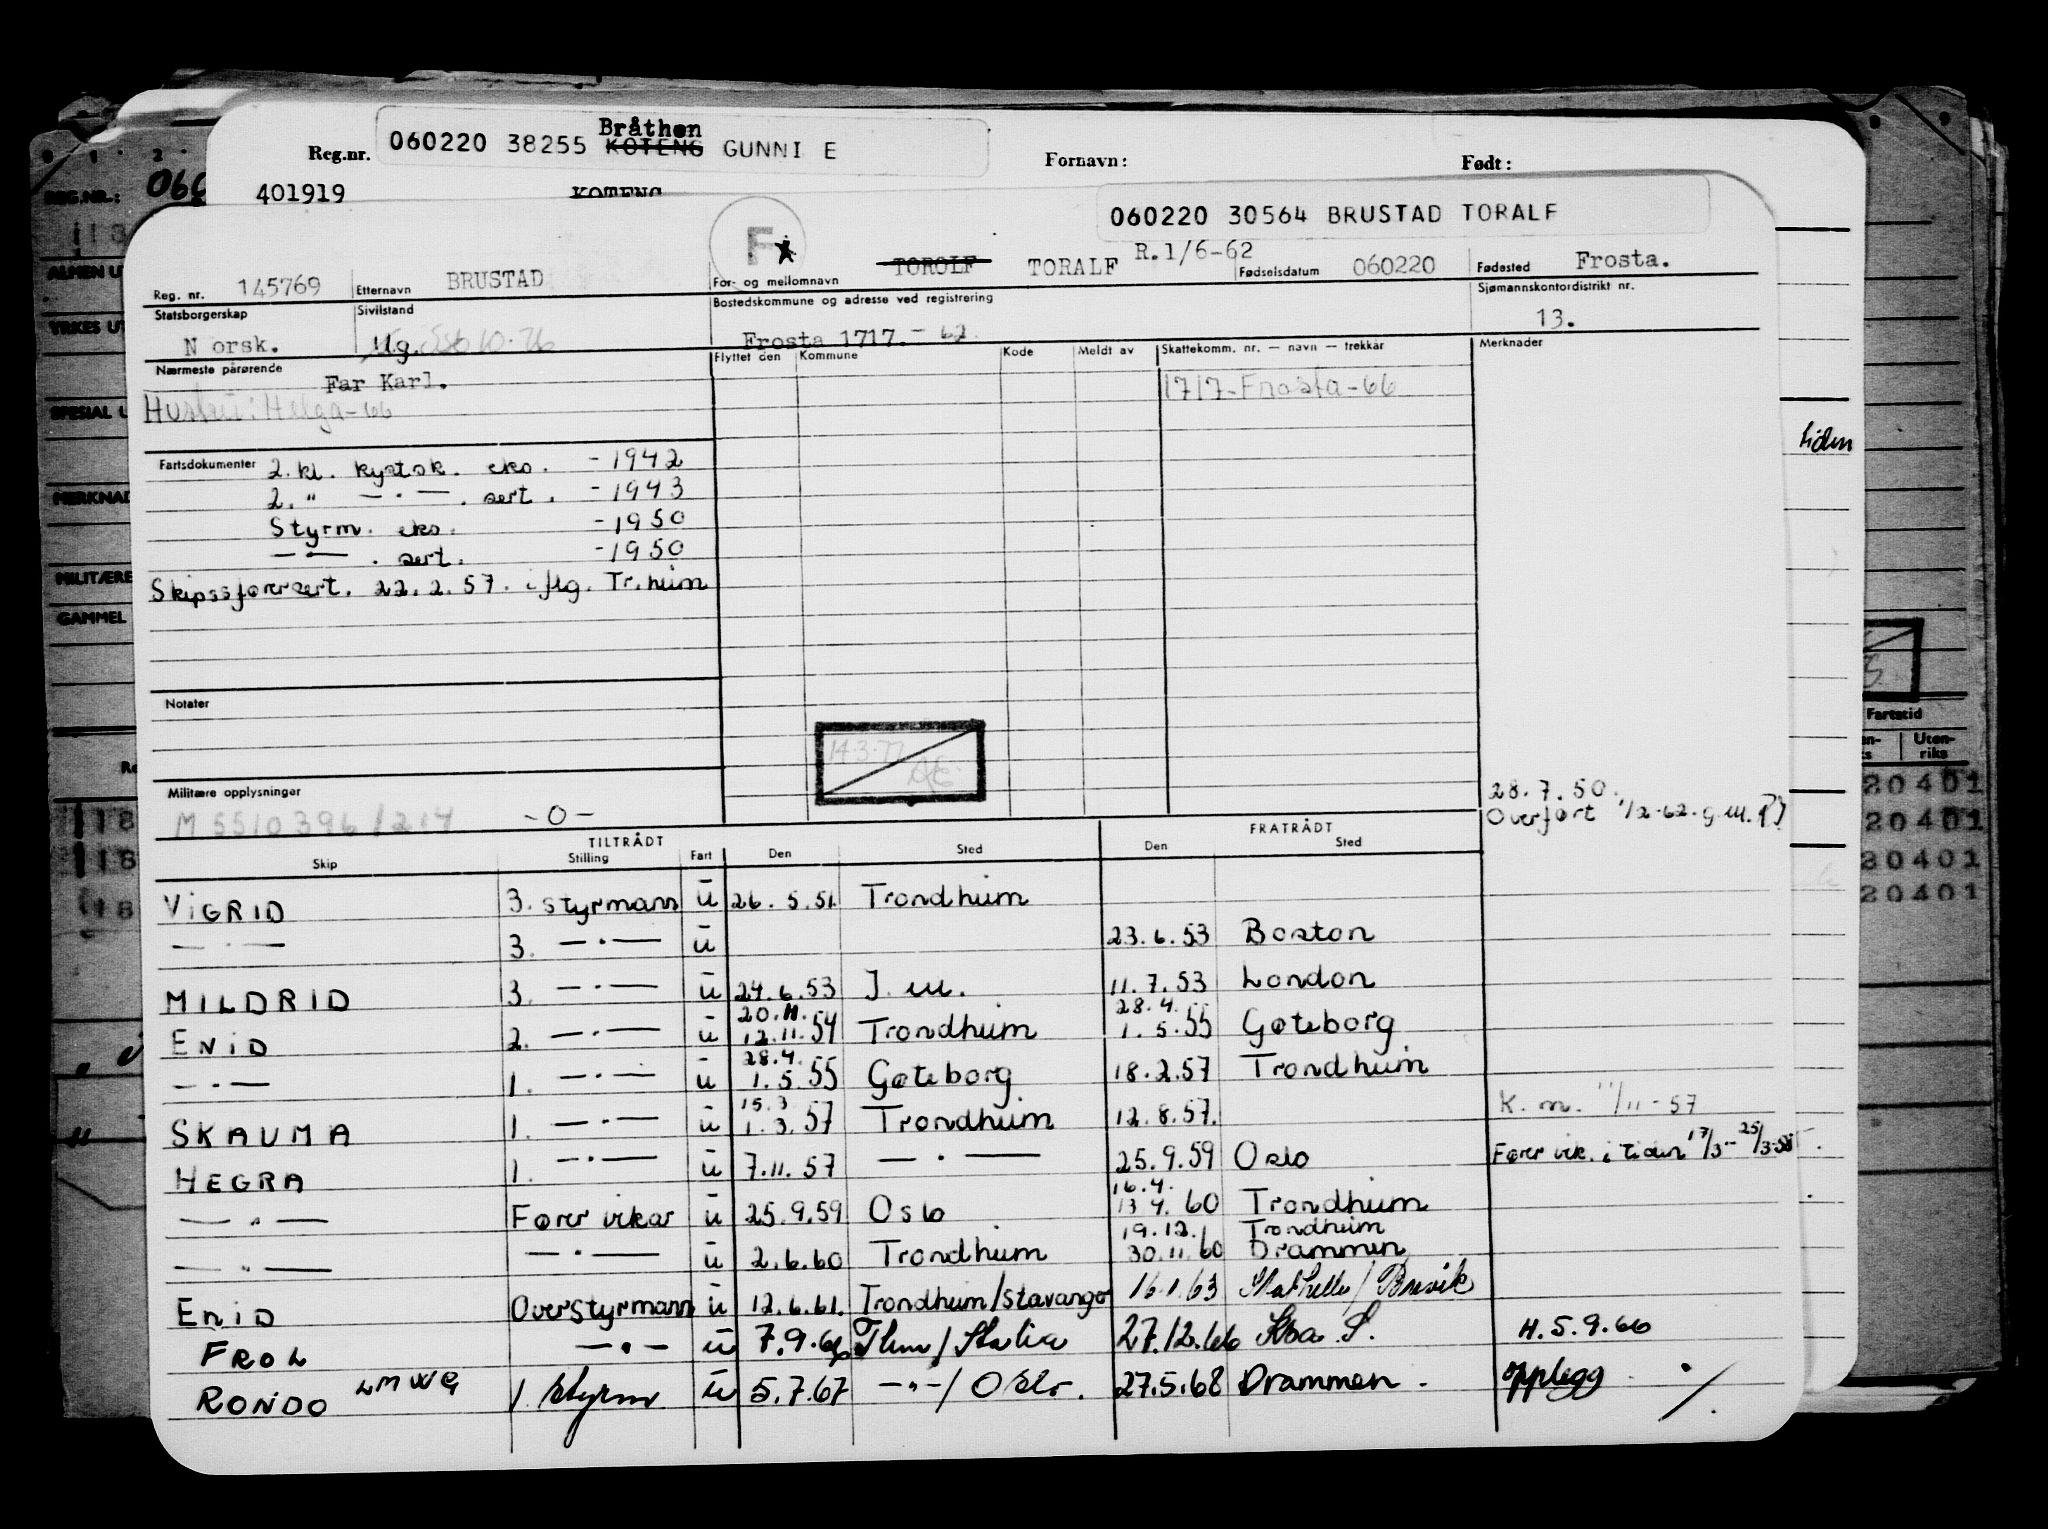 Bråthen
Reg.nr. 060220 38255 KOTENG GUNNI E Fornavn: Født:
REG.NR.: 060
401919 KOTENG
060220 30564 BRUSTAD TORALF
F
TOROLF TORALF R.1/6-62
Reg. nr. 145769 Etternavn BRUSTAD For- og mellomnavn Fødselsdatum 060220 Fødested Frosta.
Statsborgerskap Sivilstand Bostedskommune og adresse ved registrering Sjømannskontordistrikt nr.
Norsk. Ug. Frosta 1717.-62. 13.
Nærmeste pårørende Flyttet den Kommune Kode Meldt av Skattekomm. nr. — navn — trekkår Merknader
Far Karl. 1717-Frosta-66
Hustru: Helga-66
tiden
Fartsdokumenter 2. kl. kystsk. eks. -1942
2. " —·— . sert. -1943
Styrm. eks. -1950
—·— . sert. -1950
Skipssførersert. 22.2.57. iflg. Tr.heim
Notater
14.3.77
Fartstid
Uten-
riks
Militære opplysninger
M 5510396/214 -0-
28.7.50.
Overført 1/2-62. g.m.
TILTRÅDT FRATRÅDT
Skip Stilling Fart Den Sted Den Sted
20401
20401
20401
20401
VIGRID 3. styrmann u 26.5.51. Trondheim
—·— 3. —·— u 23.6.53 Boston
MILDRID 3. —·— u 24.6.53 I. u. 11.7.53 London
20.11. 28.4.
ENID 2. —·— u 12.11.54 Trondheim 1.5.55 Gøteborg
28.4.
—·— 1. —·— u 1.5.55 Gøteborg 18.2.57 Trondheim
15.3
SKAUMA 1. —·— u 1.3.57 Trondheim 12.8.57. K. m. 11/11-57
HEGRA 1. —·— u 7.11.57 —·— 25.9.59 Oslo Fører vik. i tiden 17/3-25/3-58
16.4.
—·— Fører vikar u 25.9.59 Oslo 13.4.60 Trondheim
19.12. Trondheim
—·— —·— u 2.6.60 Trondheim 30.11.60 Drammen
ENID Overstyrmann u 12.6.61. Trondheim/Stavanger 16.1.63 Stathelle/Brevik
FROL —·— u 7.9.66 Thm/Italia 27.12.66 H.5.9.66
RONDO LMWG 1. styrm u 5.7.67 —·—/Oslo. 27.5.68 Drammen. opplegg ·/.